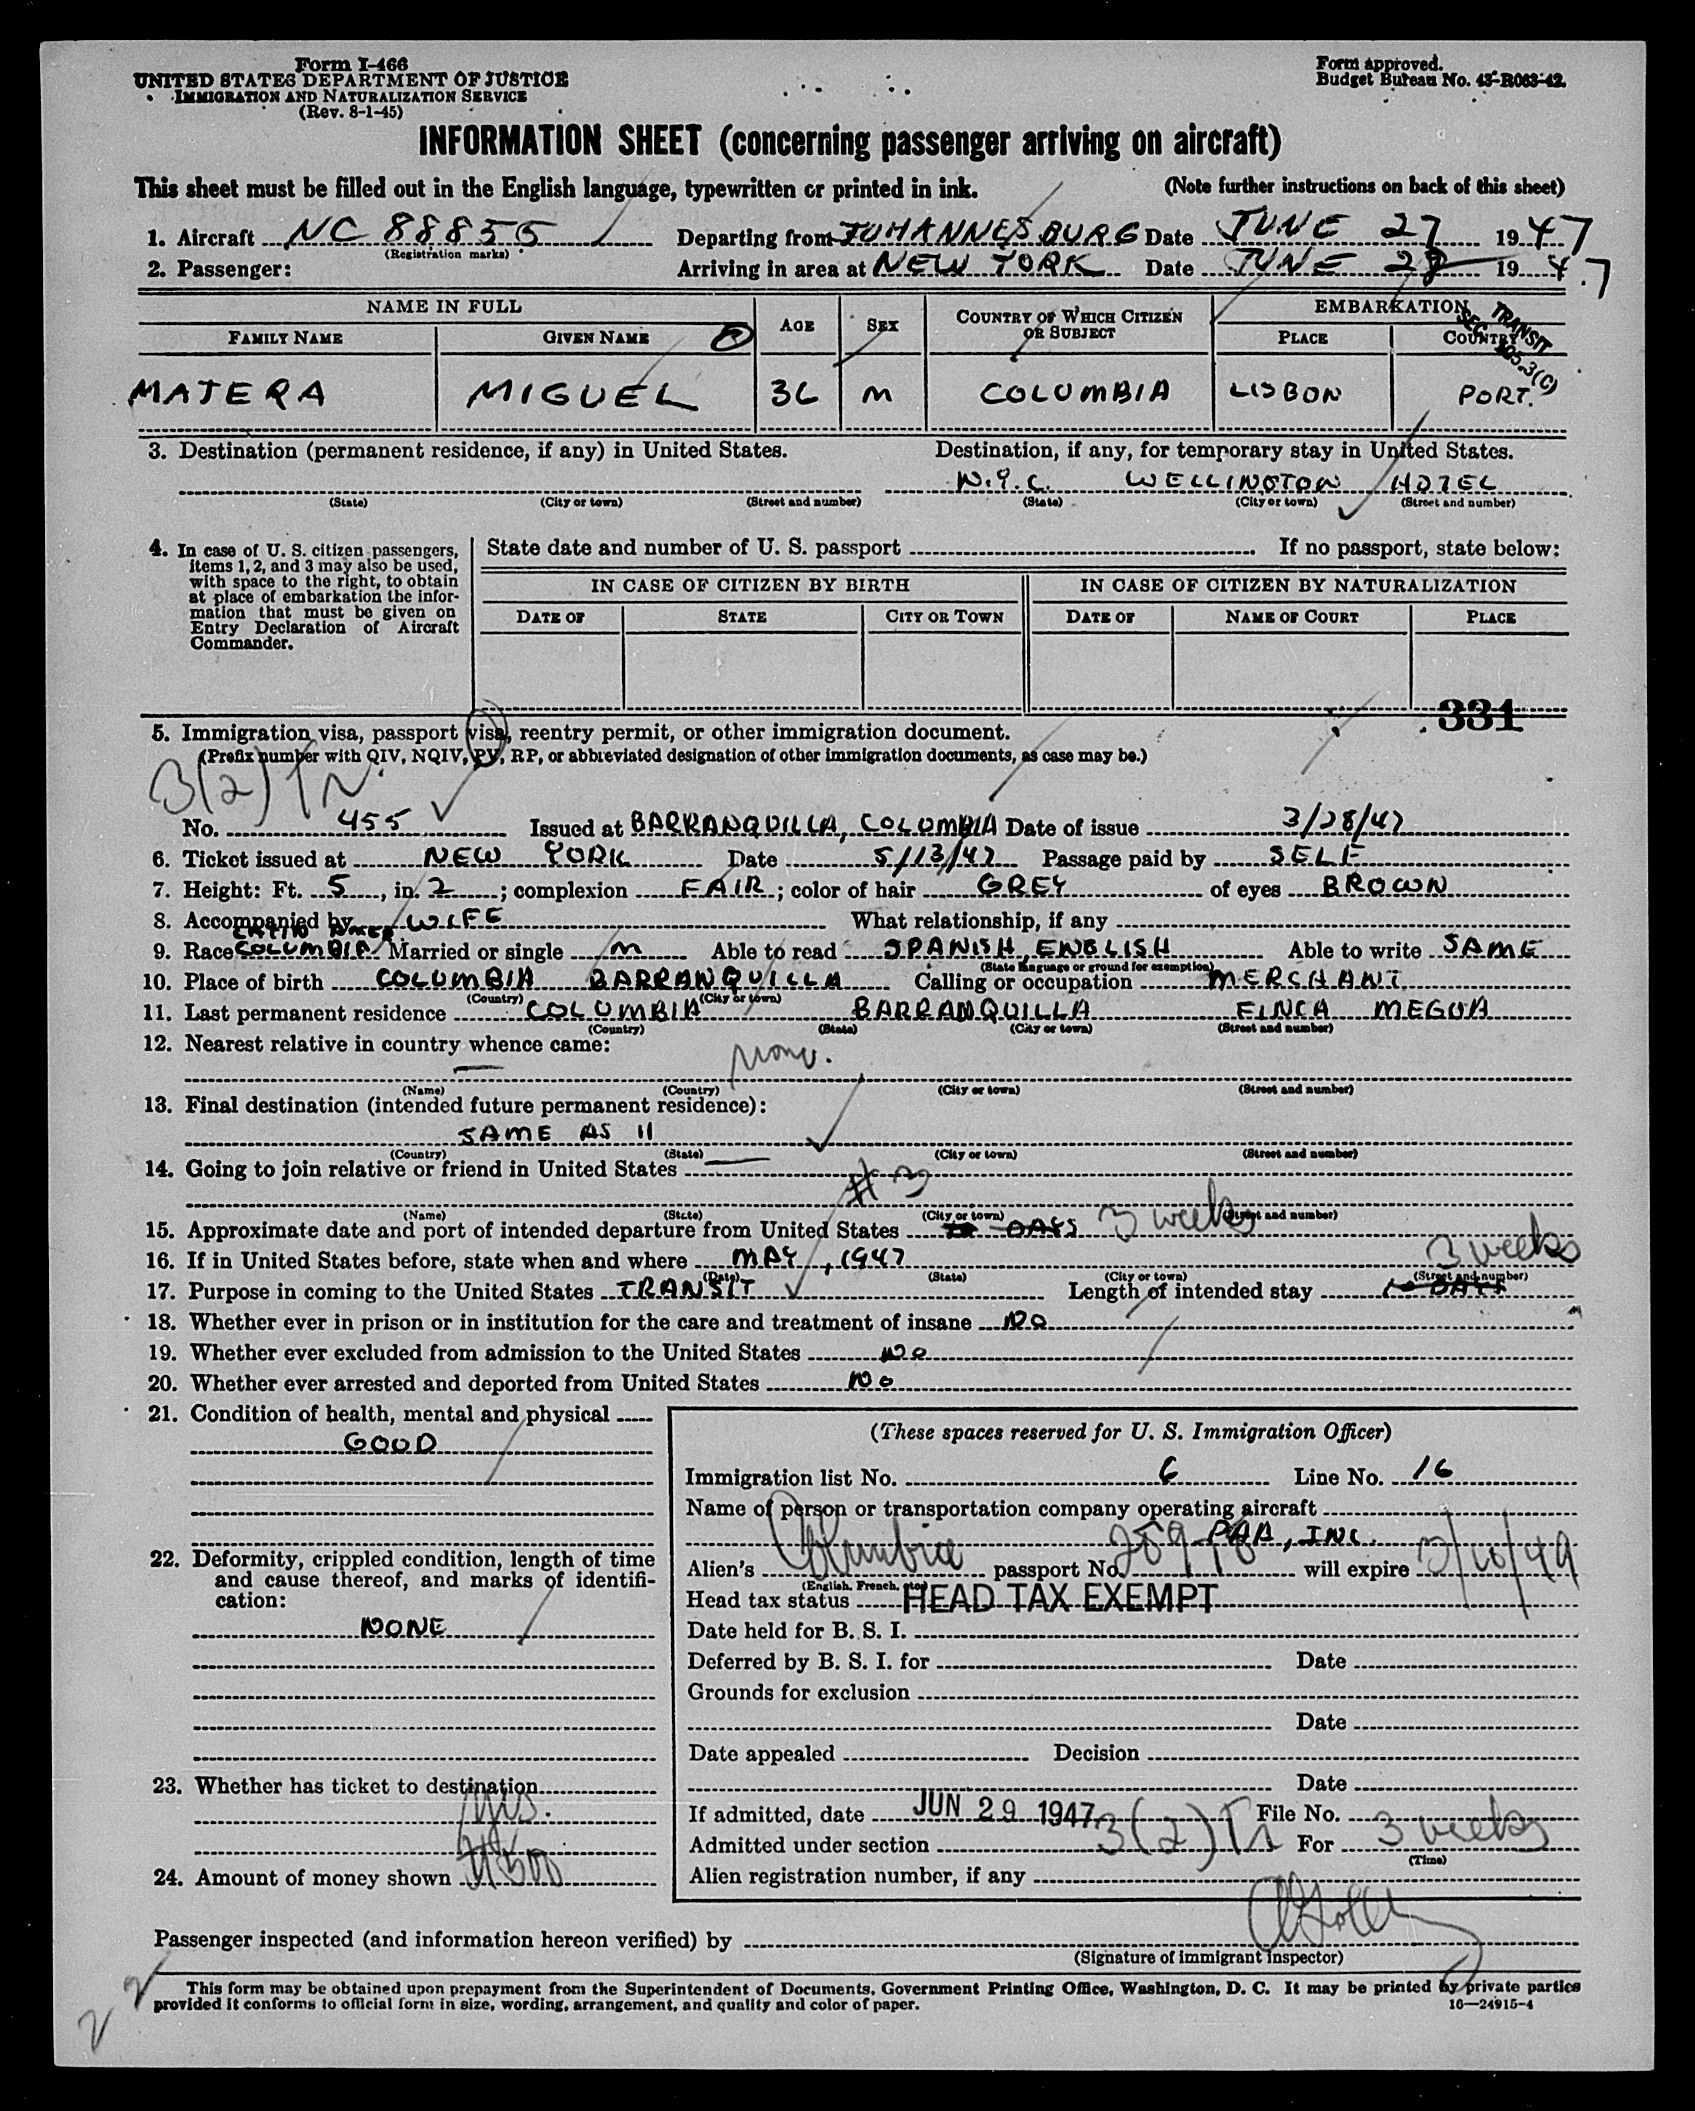 Form I-466
UNITED STATES DEPARTMENT OF JUSTICE
IMMIGRATION AND NATURALIZATION SERVICE
(Rev. 8-1-45)
Form approved.
Budget Bureau No. 43-R063-42.
INFORMATION SHEET (concerning passenger arriving on aircraft)
This sheet must be filled out in the English language, typewritten or printed in ink. (Note further instructions on back of this sheet)
1. Aircraft NC 88855 Departing from JOHANNESBURG Date JUNE 27 1947
(Registration marks)
2. Passenger: Arriving in area at NEW YORK Date JUNE 28 1947
NAME IN FULL AGE SEX COUNTRY OF WHICH CITIZEN OR SUBJECT EMBARKATION
FAMILY NAME GIVEN NAME PLACE COUNTRY
TRANSIT
SEC. 105.3(C)
MATERA MIGUEL 36 M COLUMBIA LISBON PORT.
3. Destination (permanent residence, if any) in United States. Destination, if any, for temporary stay in United States.
N.Y.C. WELLINGTON HOTEL
(State) (City or town) (Street and number) (State) (City or town) (Street and number)
4. In case of U. S. citizen passengers, items 1, 2, and 3 may also be used, with space to the right, to obtain at place of embarkation the information that must be given on Entry Declaration of Aircraft Commander.
State date and number of U. S. passport If no passport, state below:
IN CASE OF CITIZEN BY BIRTH IN CASE OF CITIZEN BY NATURALIZATION
DATE OF STATE CITY OR TOWN DATE OF NAME OF COURT PLACE
331
5. Immigration visa, passport visa, reentry permit, or other immigration document.
(Prefix number with QIV, NQIV, PV, RP, or abbreviated designation of other immigration documents, as case may be.)
3(2) Tr.
No. 455 Issued at BARRANQUILLA, COLOMBIA Date of issue 3/28/47
6. Ticket issued at NEW YORK Date 5/13/47 Passage paid by SELF
7. Height: Ft. 5, in. 2; complexion FAIR; color of hair GREY of eyes BROWN
8. Accompanied by WIFE What relationship, if any
LATIN AMER
9. Race COLUMBIA Married or single M Able to read SPANISH, ENGLISH Able to write SAME
(State language or ground for exemption)
10. Place of birth COLUMBIA BARRANQUILLA Calling or occupation MERCHANT
(Country) (City or town)
11. Last permanent residence COLUMBIA BARRANQUILLA FINCA MEGUA
(Country) (State) (City or town) (Street and number)
12. Nearest relative in country whence came:
None.
(Name) (Country) (City or town) (Street and number)
13. Final destination (intended future permanent residence):
SAME AS 11
(Country) (State) (City or town) (Street and number)
14. Going to join relative or friend in United States
#3
(Name) (State) (City or town) (Street and number)
15. Approximate date and port of intended departure from United States DAYS 3 weeks
16. If in United States before, state when and where MAY, 1947
(Date) (State) (City or town) (Street and number)
3 weeks
17. Purpose in coming to the United States TRANSIT Length of intended stay DAYS
18. Whether ever in prison or in institution for the care and treatment of insane NO
19. Whether ever excluded from admission to the United States NO
20. Whether ever arrested and deported from United States NO
21. Condition of health, mental and physical
GOOD
22. Deformity, crippled condition, length of time and cause thereof, and marks of identification:
NONE
23. Whether has ticket to destination
yes.
24. Amount of money shown $1500
(These spaces reserved for U. S. Immigration Officer)
Immigration list No. 6 Line No. 16
Name of person or transportation company operating aircraft
PAA, INC.
Alien's Columbia passport No. will expire 3/10/49
(English, French, etc.)
Head tax status HEAD TAX EXEMPT
Date held for B. S. I.
Deferred by B. S. I. for Date
Grounds for exclusion
Date
Date appealed Decision
Date
If admitted, date JUN 29 1947 File No.
Admitted under section 3(2) Tr For 3 weeks
(Time)
Alien registration number, if any
Passenger inspected (and information hereon verified) by
(Signature of immigrant inspector)
This form may be obtained upon prepayment from the Superintendent of Documents, Government Printing Office, Washington, D. C. It may be printed by private parties
provided it conforms to official form in size, wording, arrangement, and quality and color of paper. 16—24915-4
22